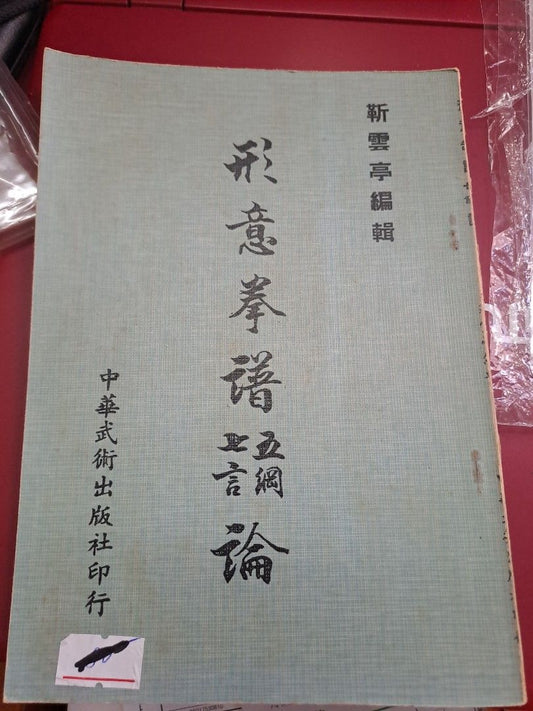 靳雲亭編輯
形意拳譜五綱七言論
中華武術出版社印行